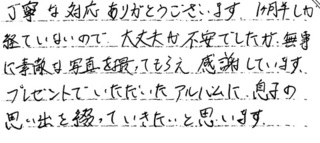 丁寧な対応ありがとうございます。1ヶ月半しか
経ていないので、大丈夫か不安でしたが、無事
に素敵な写真を撮ってもらえ、感謝しています。
プレゼントでいただいたアルバムに、息子の
思い出を綴っていきたいと思います。